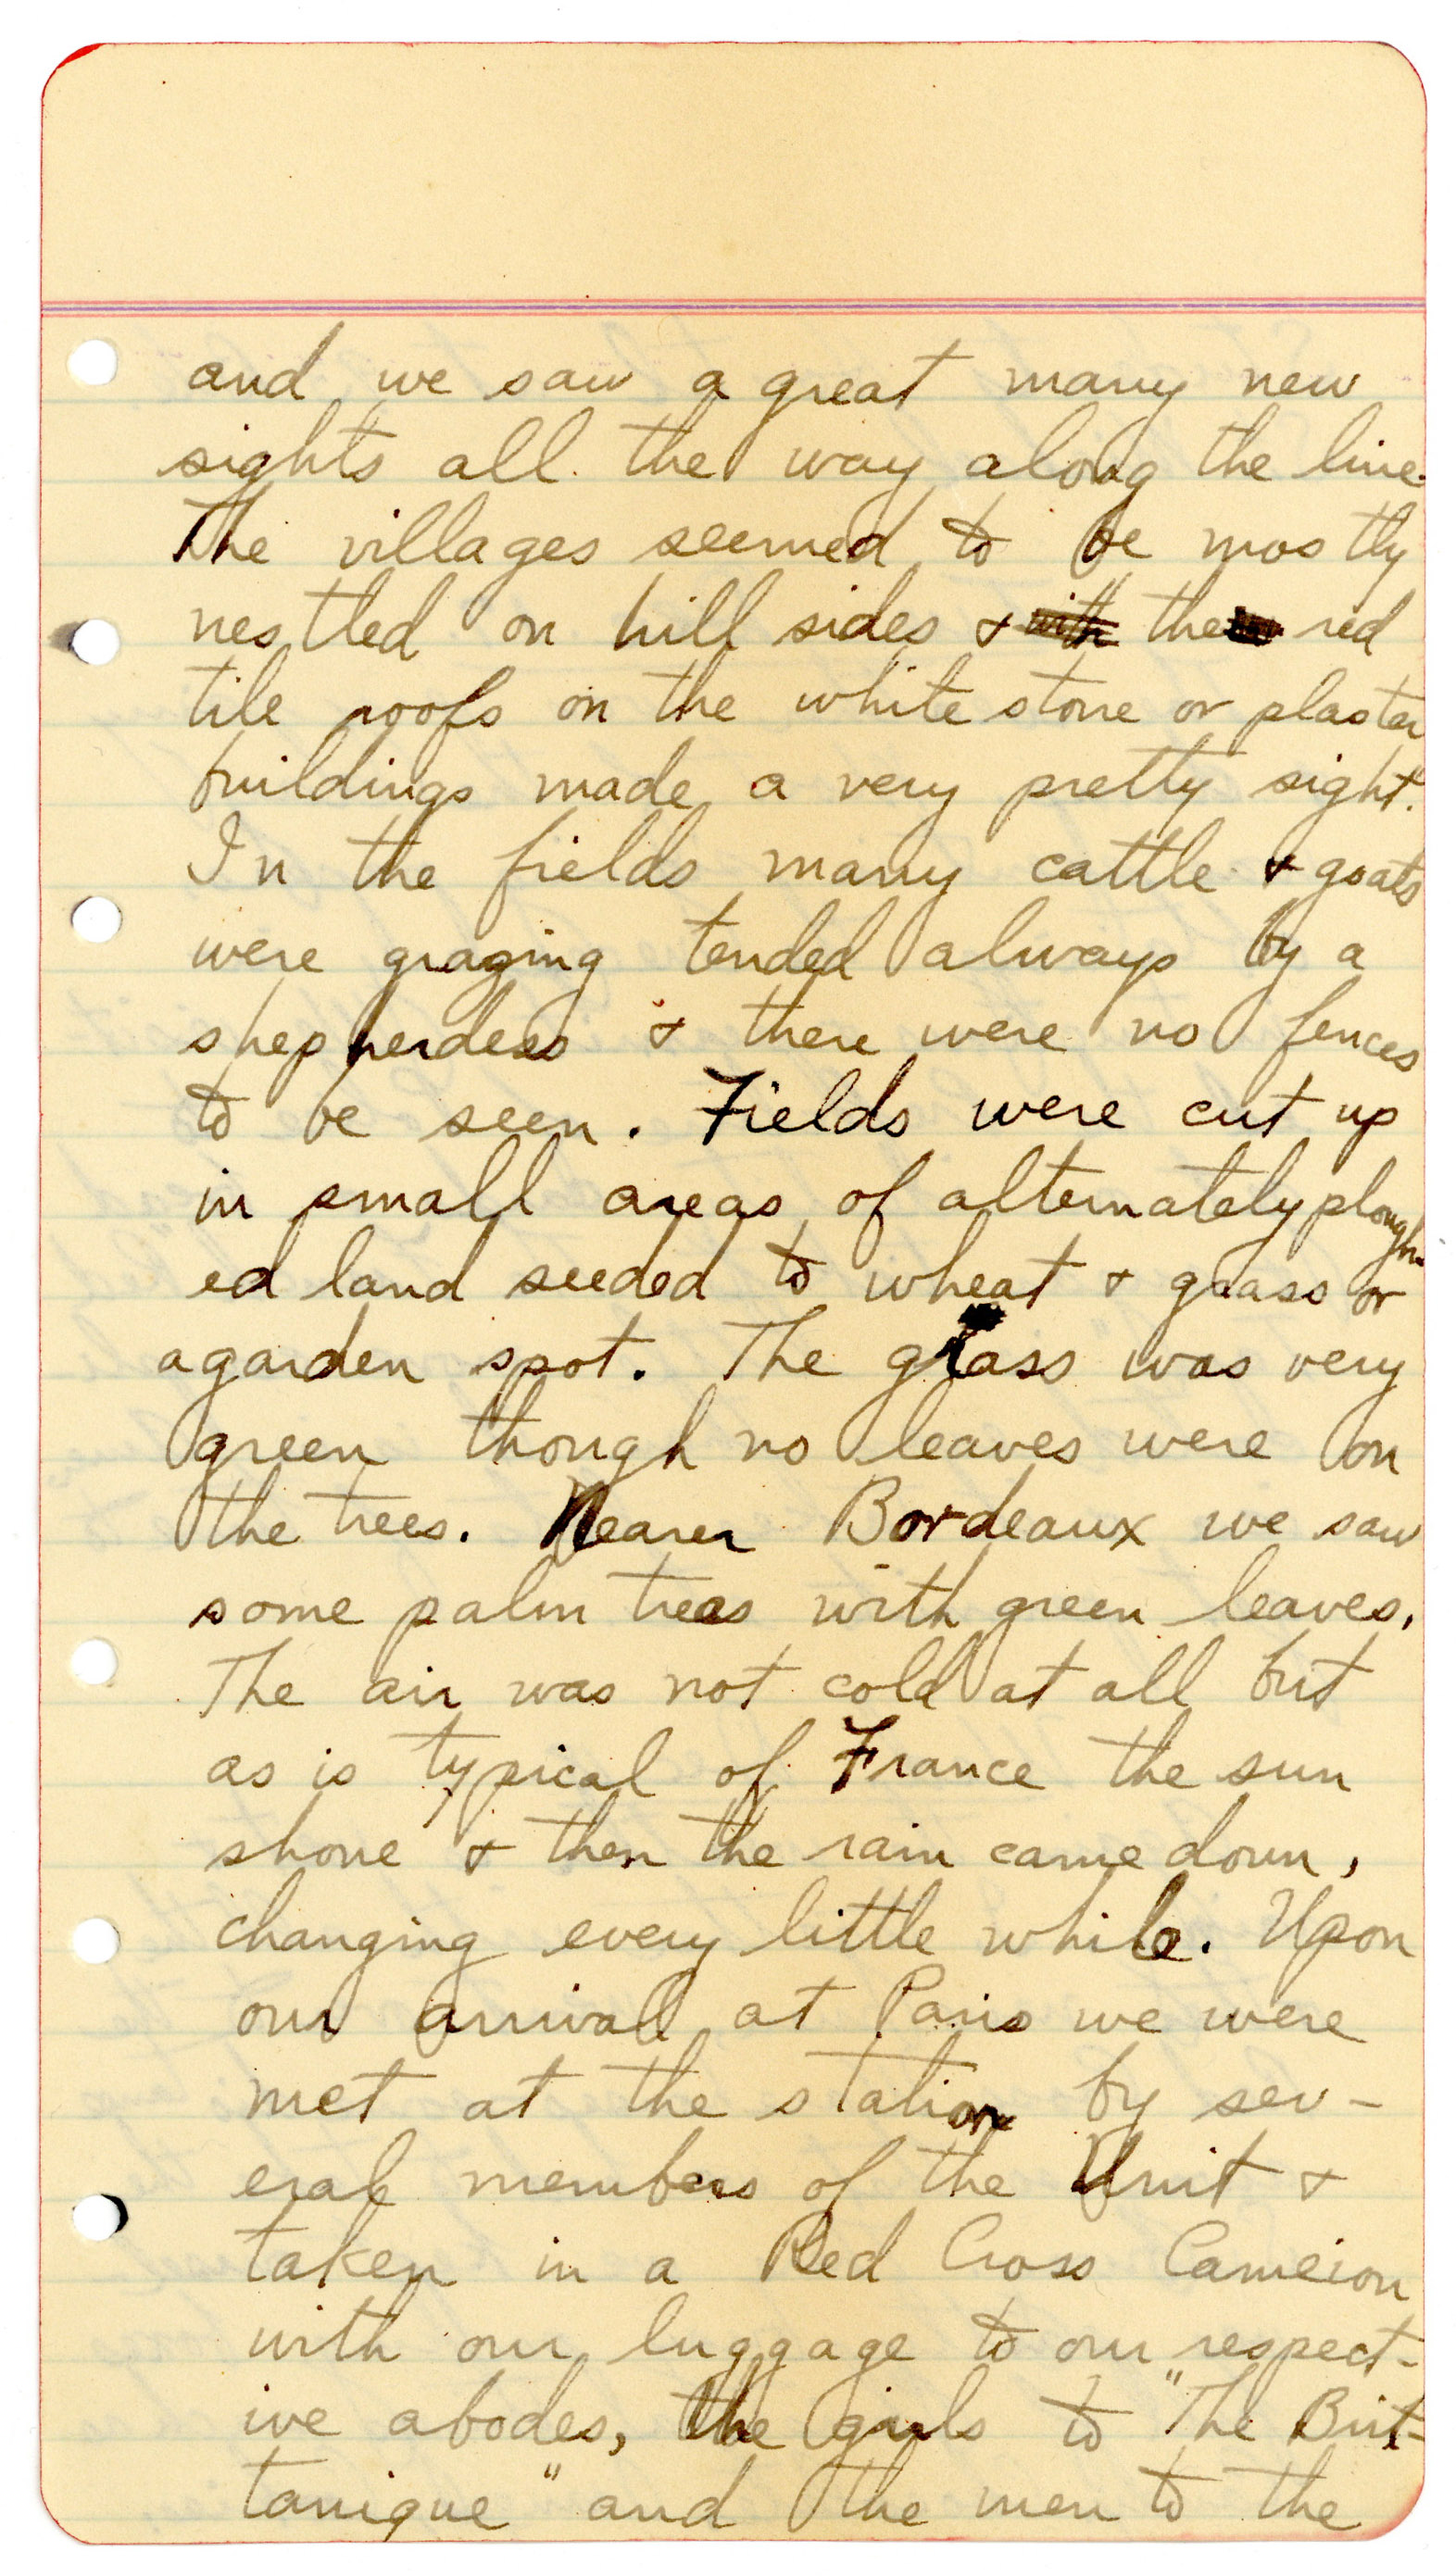 and we saw a great many new
sights all the way along the line.
The villages seemed to be mostly
nestled on hill sides & with the red
tile roofs on the white stone or plaster
buildings made a very pretty sight.
In the fields many cattle & goats
were grazing tended always by a
shepherdess & there were no fences
to be seen. Fields were cut up
in small areas of alternately plough-
ed land seeded to wheat & grass or
a garden spot. The grass was very
green though no leaves were on
the trees. Nearer Bordeaux we saw
some palm trees with green leaves.
The air was not cold at all but
as is typical of France the sun
shone & then the rain came down,
changing every little while. Upon
our arrival at Paris we were
met at the station by sev-
eral members of the Unit &
taken in a Red Cross Cameion
with our luggage to our respect-
ive abodes, the girls to "The Brit-
tanique" and the men to the